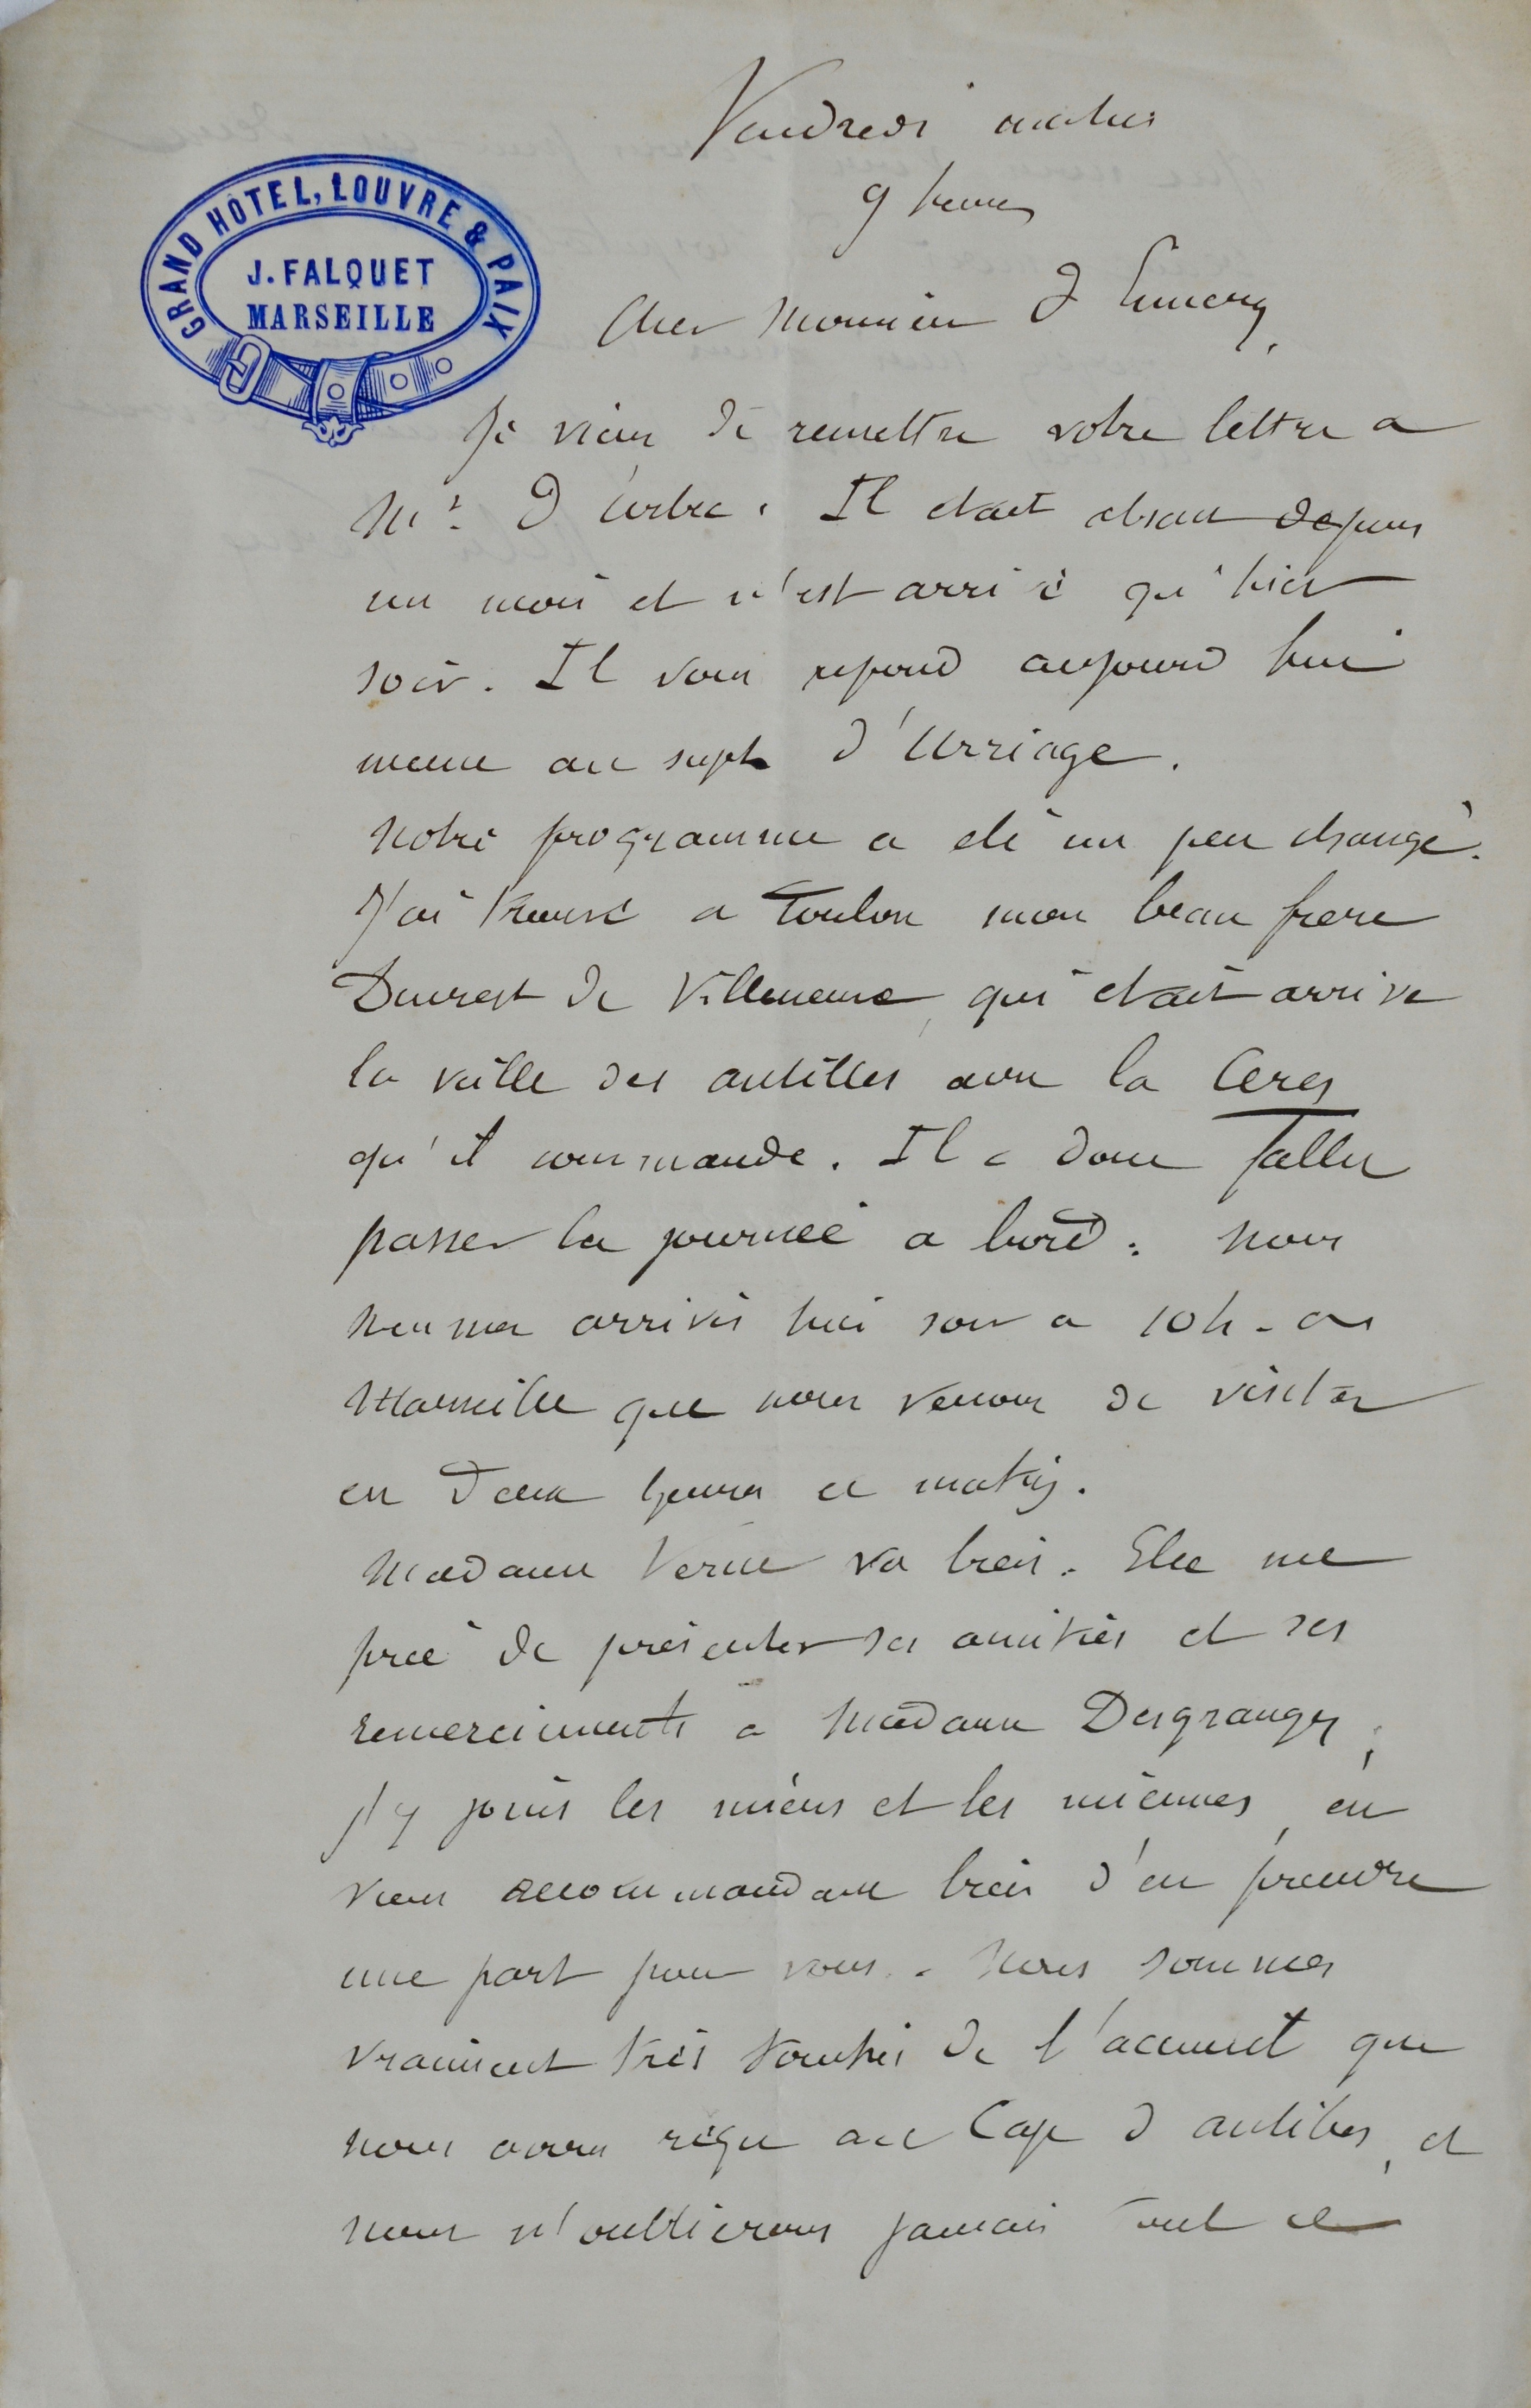 Vendredi matin
9 heures
GRAND HÔTEL, LOUVRE & PAIX
J. FALQUET
MARSEILLE
Cher Monsieur d'Ennery,
Je viens de remettre votre lettre a
Mr. D Il etait absent depuis
un mois et n'est arrivé qu'hier
soir. Il vous repond aujourd hui
meme au sujet d'Urriage.
Notre programme a eté un peu changé.
J'ai trouvé a Toulon mon beau frere
Duvrest de Villeneuve, qui etait arrivé
la veille des antilles avec la Ceres
qu'il commande. Il a donc fallu
passer la journée a bord. Nous
sommes arrivés hier soir a 10h. a
Marseille que nous venons de visiter
en deux heures ce matin.
Madame Verne va bien. Elle me
prie de présenter ses amitiés et ses
remerciments a Madame Desgranges,
j'y joins les miens et les miennes, en
vous recommandant bien d'en prendre
une part pour vous. Nous sommes
vraiment très touchés de l'accueil que
nous avons reçu au Cap d antibes, et
nous n'oublierons jamais tout ce